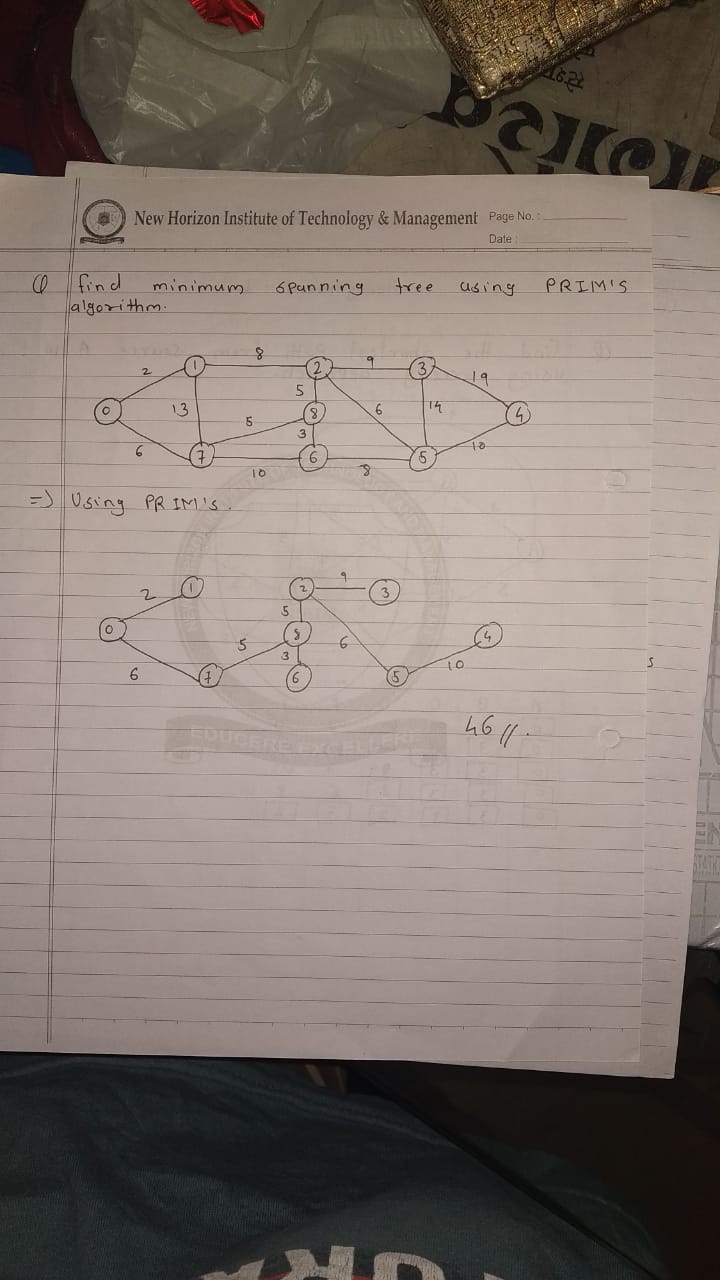 New Horizon Institute of Technology & Management
Page No. :
Date :
Q find minimum spanning tree using PRIM'S
algorithm.
8
9
2
1
2
3
19
5
0
13
8
6
14
4
5
3
6
7
6
5
10
10
8
=) Using PRIM'S.
9
2
1
2
3
5
0
8
4
5
6
3
6
7
6
5
10
46 //.
EDUCERE EXCELLERE